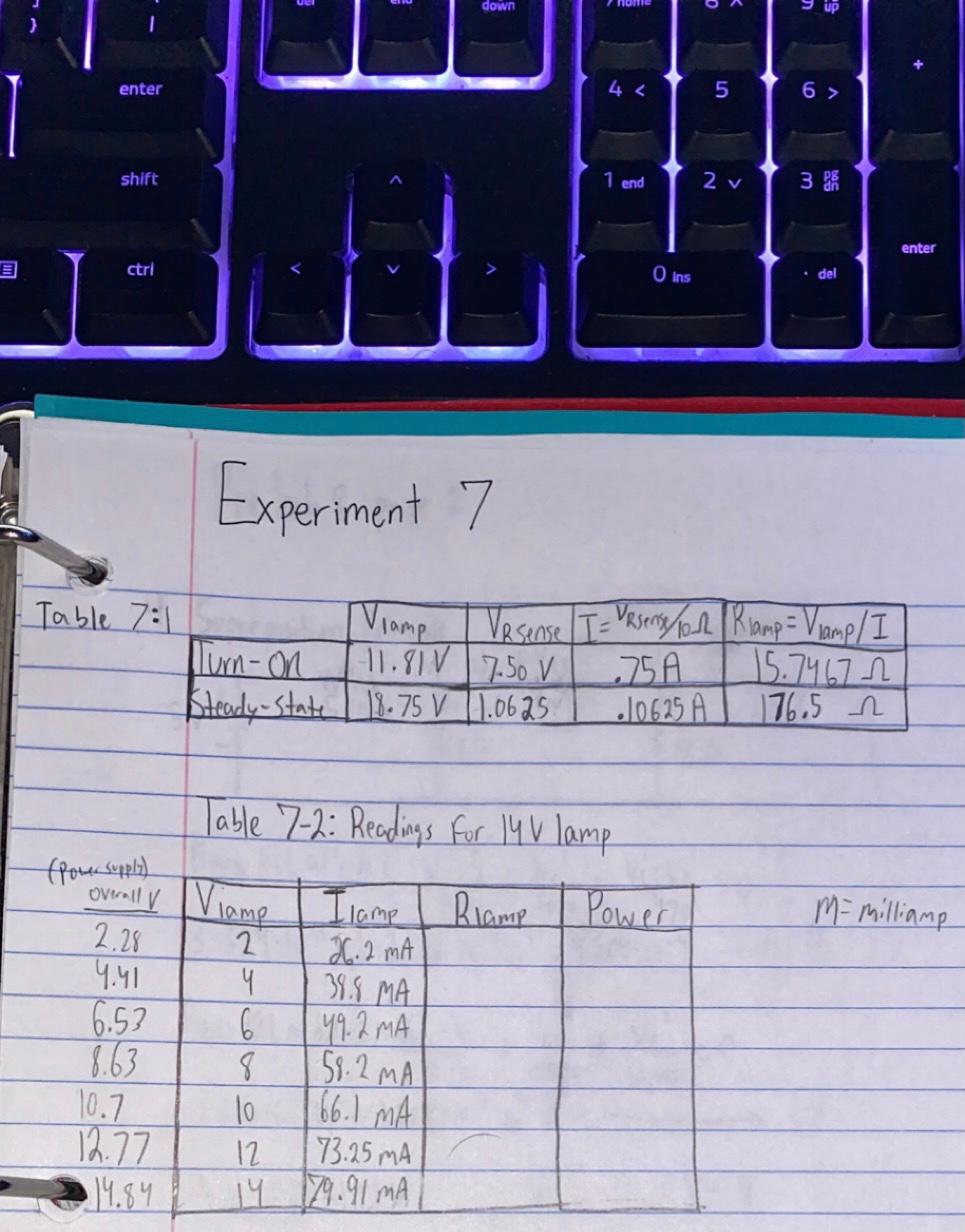 del end down 7 home 8 ^ 9 pg up
} |
+
enter 4 < 5 6 >
shift ^ 1 end 2 v 3 pg dn
enter
ctrl < v > 0 ins . del
Experiment 7
Table 7:1
Vlamp VRSense I=VRsense/10Ω Rlamp=Vlamp/I
Turn-On 11.81 V 7.50 V .75A 15.7467 Ω
Steady-State 18.75 V 1.0625 .10625 A 176.5 Ω
Table 7-2: Readings for 14V lamp
(Power supply)
Overall V Vlamp Ilamp Rlamp Power m= milliamp
2.28 2 26.2 mA
4.41 4 38.8 mA
6.53 6 49.2 mA
8.63 8 58.2 mA
10.7 10 66.1 mA
12.77 12 73.25 mA
14.84 14 79.91 mA